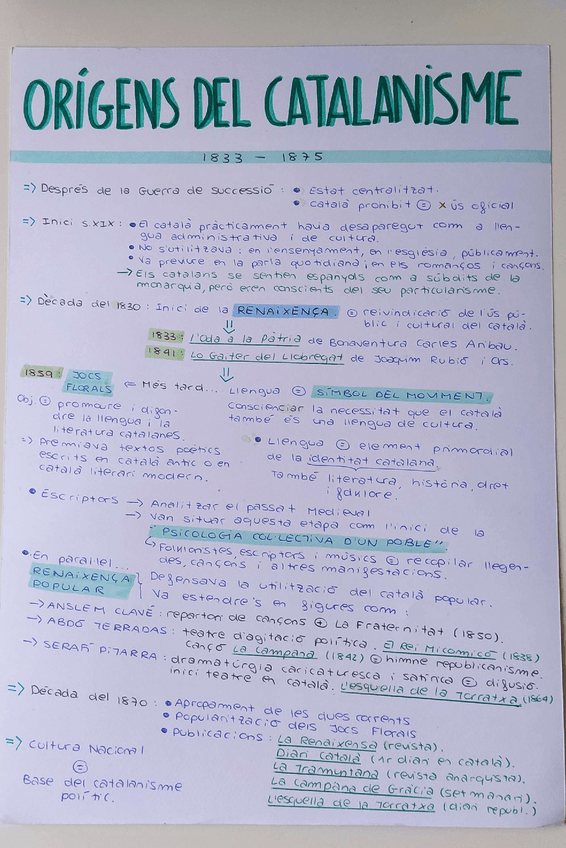 ORÍGENS DEL CATALANISME
1833 - 1875
=> Després de la Guerra de successió : • Estat centralitzat.
• Català prohibit = x ús oficial
=> Inici s XIX: • El català pràcticament havia desaparegut com a llen-
gua administrativa i de cultura.
• No s'utilitzava: en l'ensenyament, en l'església, públicament.
• Va previure en la parla quotidiana i en els romanços i cançons.
→ Els catalans se sentien espanyols com a súbdits de la
monarquia, però eren conscients del seu particularisme.
=> Dècada del 1830: Inici de la RENAIXENÇA. = reivindicació de l'ús pú-
blic i cultural del català.
1833: L'Oda a la Pàtria de Bonaventura Carles Aribau.
1841: Lo Gaiter del Llobregat de Joaquim Rubió i Ors.
1859: JOCS
FLORALS
<= Més tard... Llengua = SÍMBOL DEL MOVIMENT.
conscienciar la necessitat que el català
també és una llengua de cultura.
Obj. = promoure i difon-
dre la llengua i la
literatura catalanes.
=> Premiava textos poètics
escrits en català antic o en
català literari modern.
• Llengua = element primordial
de la identitat catalana.
També literatura, història, dret
i folklore.
• Escriptors → Analitzar el passat Medieval
→ Van situar aquesta etapa com l'inici de la
"PSICOLOGIA COL·LECTIVA D'UN POBLE"
Folkloristes, escriptors i músics = recopilar llegen-
des, cançons i altres manifestacions.
• En paral·lel...
RENAIXENÇA
POPULAR
Defensava la utilització del català popular.
Va estendre's en figures com:
→ ANSLEM CLAVÉ: repertori de cançons + La Fraternitat (1850).
→ ABDÓ TERRADAS: teatre d'agitació política. El Rei Micomicó (1838)
cançó La campana (1842) = himne republicanisme.
→ SERAFÍ PITARRA: dramatúrgia caricaturesca i satírica = difusió.
inici teatre en català. L'esquella de la Torratxa (1864)
=> Dècada del 1870: • Apropament de les dues corrents
• Popularització dels Jocs Florals
• Publicacions: La Renaixensa (revista).
Diari Català (1r diari en català).
La Tramuntana (revista anarquista).
La Campana de Gràcia (setmanari).
L'esquella de la Torratxa (diari republ.)
=> Cultura Nacional
=
Base del catalanisme
polític.